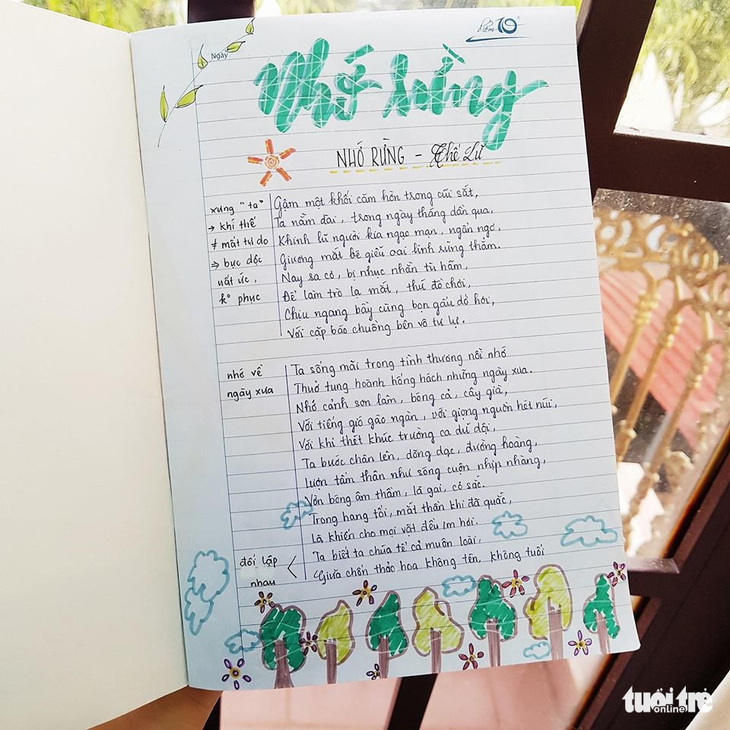 Ngày
10
Nhớ rừng
NHỚ RỪNG - Thế Lữ
xưng "ta"
→ khí thế
≠ mất tự do
⇒ bực dọc
uất ức,
k° phục
Gậm một khối căm hờn trong cũi sắt,
Ta nằm dài, trong ngày tháng dần qua,
Khinh lũ người kia ngạo mạn, ngẩn ngơ,
Giương mắt bé giễu oai linh rừng thẳm.
Nay sa cơ, bị nhục nhằn tù hãm,
Để làm trò lạ mắt, thứ đồ chơi,
Chịu ngang bầy cùng bọn gấu dở hơi,
Với cặp báo chuồng bên vô tư lự.
nhớ về
ngày xưa
Ta sống mãi trong tình thương nỗi nhớ
Thuở tung hoành hống hách những ngày xưa.
Nhớ cảnh sơn lâm, bóng cả, cây già,
Với tiếng gió gào ngàn, với giọng nguồn hét núi,
Với khi thét khúc trường ca dữ dội,
Ta bước chân lên, dõng dạc, đường hoàng,
Lượn tấm thân như sóng cuộn nhịp nhàng,
Vờn bóng âm thầm, lá gai, cỏ sắc.
Trong hang tối, mắt thần khi đã quắc,
Là khiến cho mọi vật đều im hơi.
đối lập
nhau
Ta biết ta chúa tể cả muôn loài,
Giữa chốn thảo hoa không tên, không tuổi
tuổi trẻ
online